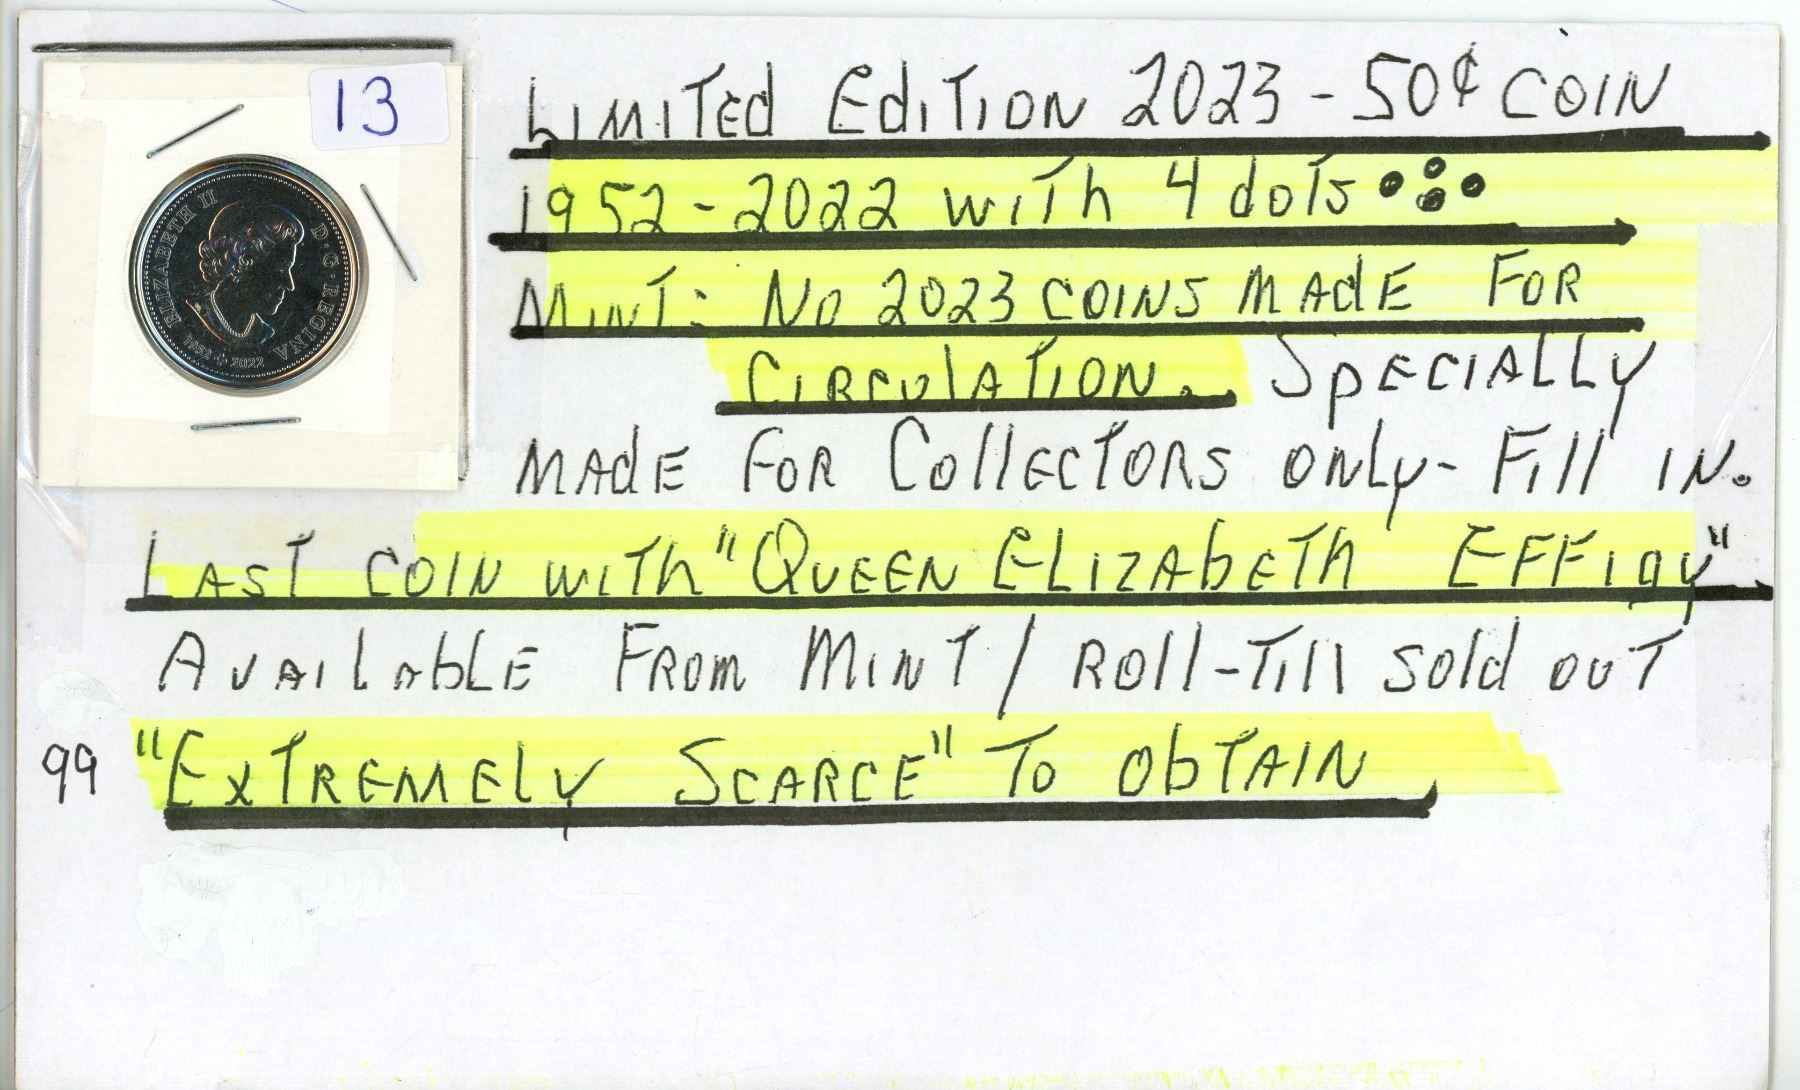 13
ELIZABETH II D·G·REGINA
1952 2022
LIMITED EDITION 2023 - 50¢ COIN
1952 - 2022 WITH 4 dOTS
MINT: NO 2023 COINS MADE FOR
CIRCULATION. SPECIALLY
MADE FOR COLLECTORS ONLY - FILL IN.
LAST COIN WITH "QUEEN ELIZABETH EFFIGY"
AVAILABLE FROM MINT / ROLL - TILL SOLD OUT
99 "EXTREMELY SCARCE" TO OBTAIN